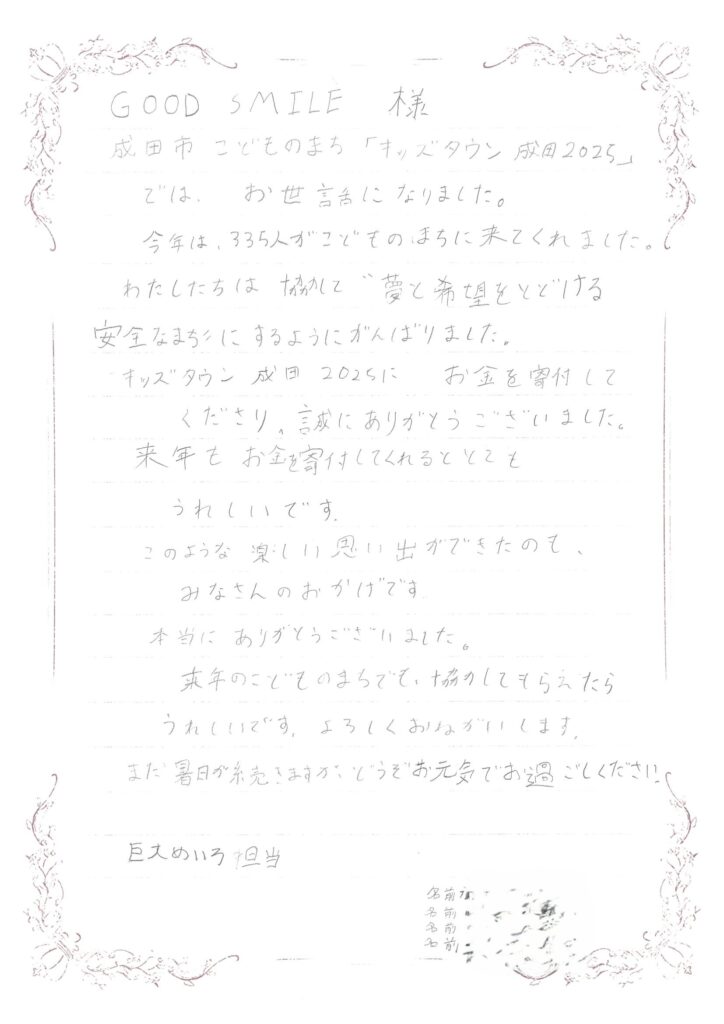 GOOD SMILE 様
成田市 こどものまち「キッズタウン成田2025」
では、お世話になりました。
今年は、335人がこどものまちに来てくれました。
わたしたちは 協力して〝夢と希望をとどける
安全なまち〟にするようにがんばりました。
キッズタウン 成田 2025に お金を寄付して
くださり、誠にありがとうございました。
来年も お金を寄付してくれるととても
うれしいです.
このような 楽しい 思い出ができたのも、
みなさんのおかげです
本当に ありがとうございました。
来年のこどものまちでも、協力してもらえたら
うれしいです. よろしくおねがいします.
まだ暑日が続きますが、どうぞお元気でお過ごしください
巨大めいろ担当
名前
名前
名前
名前